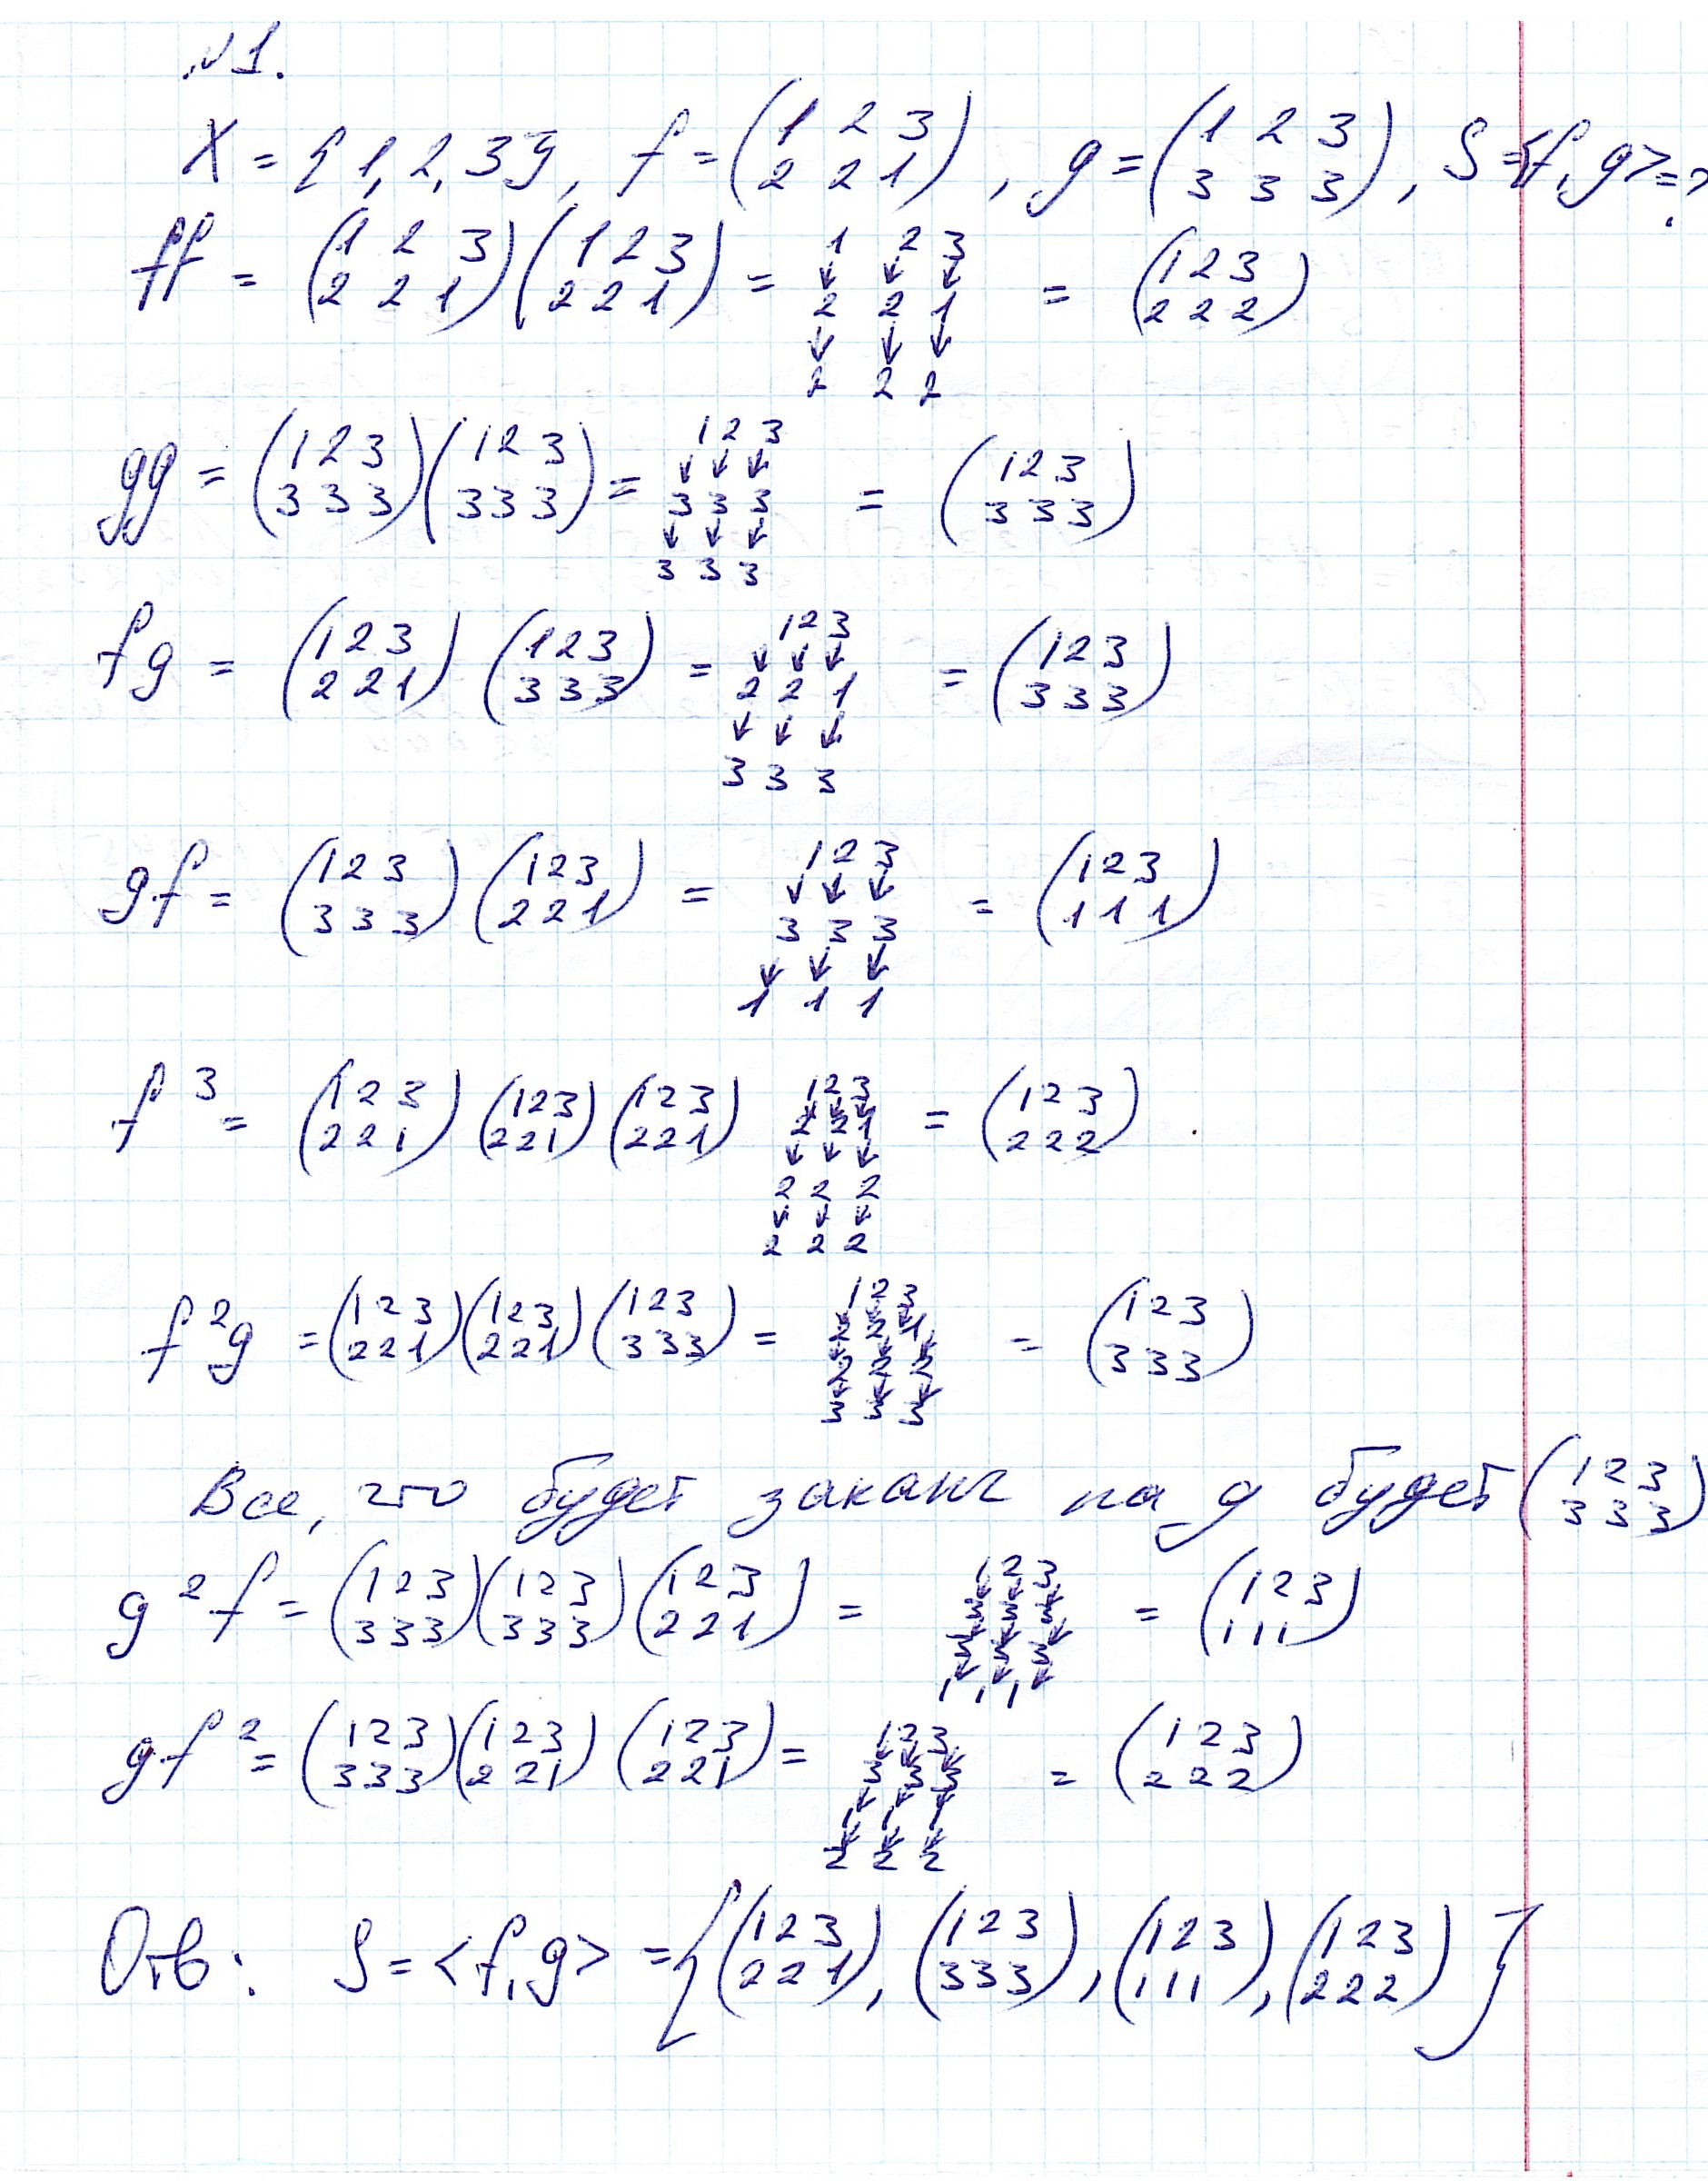 №1.
X = {1, 2, 3}, f = (1 2 3 / 2 2 1), g = (1 2 3 / 3 3 3), S = <f, g> = ?
ff = (1 2 3 / 2 2 1)(1 2 3 / 2 2 1) = 1 2 3 ↓ ↓ ↓ 2 2 1 ↓ ↓ ↓ 2 2 2 = (1 2 3 / 2 2 2)
gg = (1 2 3 / 3 3 3)(1 2 3 / 3 3 3) = 1 2 3 ↓ ↓ ↓ 3 3 3 ↓ ↓ ↓ 3 3 3 = (1 2 3 / 3 3 3)
fg = (1 2 3 / 2 2 1)(1 2 3 / 3 3 3) = 1 2 3 ↓ ↓ ↓ 2 2 1 ↓ ↓ ↓ 3 3 3 = (1 2 3 / 3 3 3)
gf = (1 2 3 / 3 3 3)(1 2 3 / 2 2 1) = 1 2 3 ↓ ↓ ↓ 3 3 3 ↓ ↓ ↓ 1 1 1 = (1 2 3 / 1 1 1)
f³ = (1 2 3 / 2 2 1)(1 2 3 / 2 2 1)(1 2 3 / 2 2 1) 1 2 3 ↓ ↓ ↓ 2 2 1 ↓ ↓ ↓ 2 2 2 ↓ ↓ ↓ 2 2 2 = (1 2 3 / 2 2 2)
f²g = (1 2 3 / 2 2 1)(1 2 3 / 2 2 1)(1 2 3 / 3 3 3) = 1 2 3 ↓ ↓ ↓ 2 2 1 ↓ ↓ ↓ 2 2 2 ↓ ↓ ↓ 3 3 3 = (1 2 3 / 3 3 3)
Все, что будет заканч на g будет (1 2 3 / 3 3 3)
g²f = (1 2 3 / 3 3 3)(1 2 3 / 3 3 3)(1 2 3 / 2 2 1) = 1 2 3 ↓ ↓ ↓ 3 3 3 ↓ ↓ ↓ 3 3 3 ↓ ↓ ↓ 1 1 1 = (1 2 3 / 1 1 1)
gf² = (1 2 3 / 3 3 3)(1 2 3 / 2 2 1)(1 2 3 / 2 2 1) = 1 2 3 ↓ ↓ ↓ 3 3 3 ↓ ↓ ↓ 1 1 1 ↓ ↓ ↓ 2 2 2 = (1 2 3 / 2 2 2)
Отв: S = <f, g> = {(1 2 3 / 2 2 1), (1 2 3 / 3 3 3), (1 2 3 / 1 1 1), (1 2 3 / 2 2 2)}